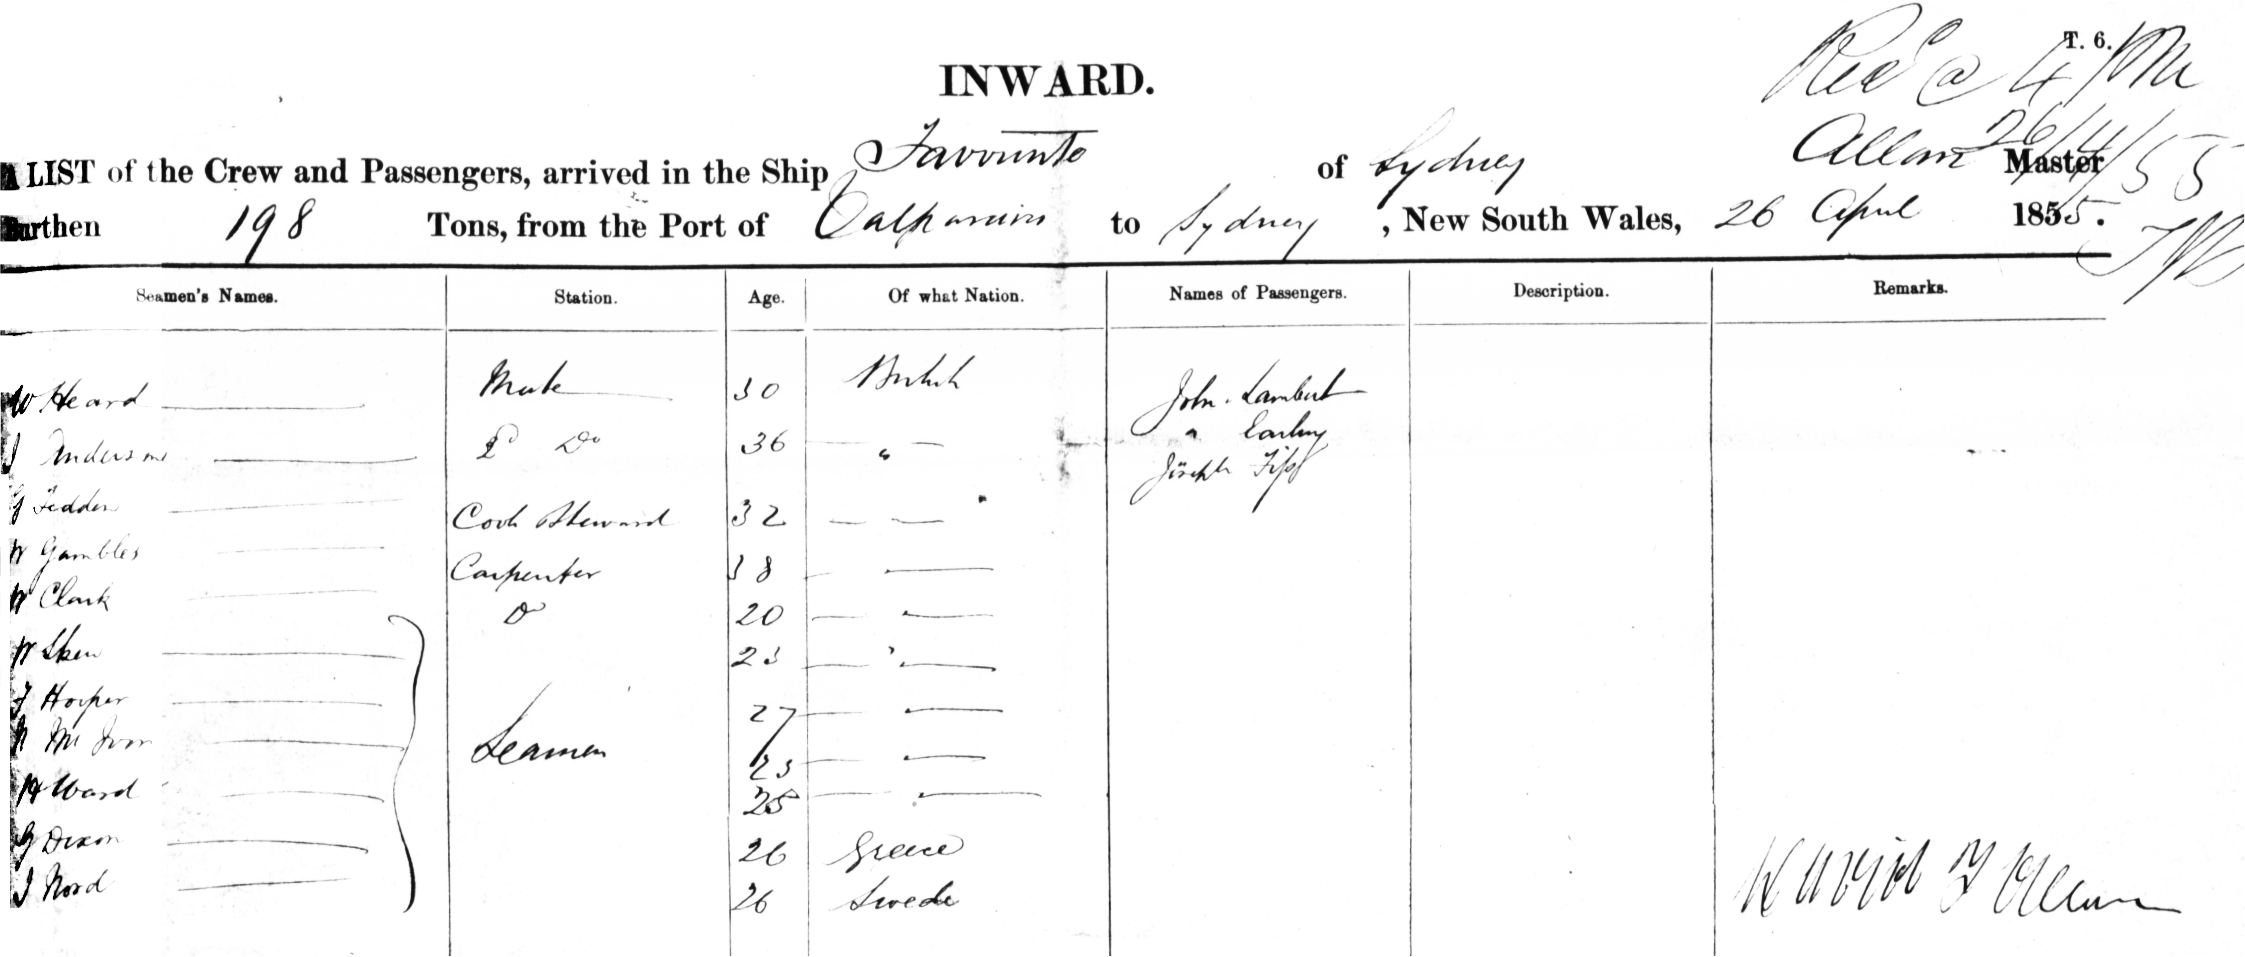 T. 6.
Recd @ 4 PM
26/4/55
INWARD.
A LIST of the Crew and Passengers, arrived in the Ship Favourite of Sydney Allan Master
Burthen 198 Tons, from the Port of Valparaiso to Sydney, New South Wales, 26 April 1855.
Seamen's Names. Station. Age. Of what Nation. Names of Passengers. Description. Remarks.
W Heard Mate 30 British John Lambert
J Anderson 2d Do 36 " "
G Fedden Cook Steward 32 " Joseph
W Gambles Carpenter 38
W Clark Do 20 "
W Skew 23 "
F Hooper 27 "
Seamen 23 "
H Ward 25 "
G Dixon 26 Greece
J Nord 26 Swede
Allan